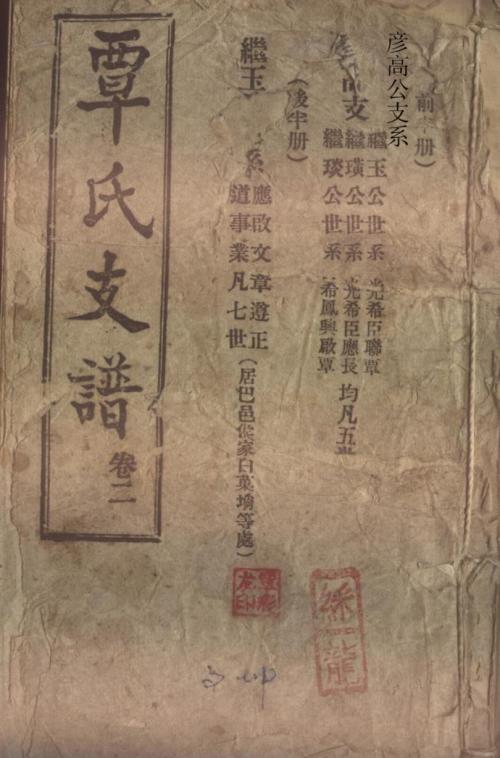 彦高公支系
前 册)
支
繼玉公世系 光希臣聯覃
繼璜公世系 光希臣應長
繼琰公世系 希鳳興啟覃
均凡五
(後半册)
繼玉 系
應啟文章遵正
道事業凡七世
(居巴邑 家白菓 等處)
覃氏支譜
卷二
印
綵一龍